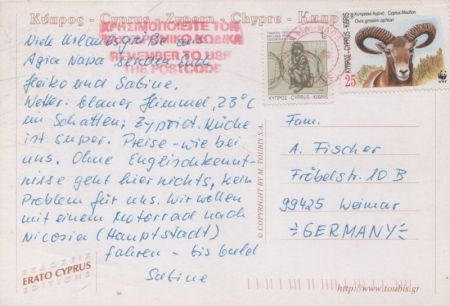 Κύπρος - Cyprus - Zypern - Chypre -
ΧΡΗΣΙΜΟΠΟΙΕΙΤΕ ΤΟΝ
ΤΑΧΥΔΡΟΜΙΚΟ ΚΩΔΙΚΑ
REMEMBER TO USE
THE POSTCODE
Viele Urlaubsgrüße aus
Agia Napa senden Euch
Heiko und Sabine.
Wetter: blauer Himmel, 23°C
im Schatten; Zypriot. Küche
ist super. Preise - wie bei
uns. Ohne Englischkennt-
nisse geht hier nichts, kein
Problem für uns. Wir wollen
mit einem Motorrad nach
Nicosia (Hauptstadt)
fahren - bis bald
Sabine
ΕΚΔΟΣΕΙΣ
ERATO CYPRUS
EDITIONS
© COPYRIGHT BY M. TOUBIS S.A.
ΚΥΠΡΟΣ CYPRUS KIBRIS
Κυπριακό Αγρινό Cyprus Mouflon
Ovis gmelini ophion
ΚΥΠΡΟΣ CYPRUS KIBRIS
25
WWF
Fam.
A. Fischer
Fröbelstr. 10 B
99425 Weimar
GERMANY
http://www.toubis.gr